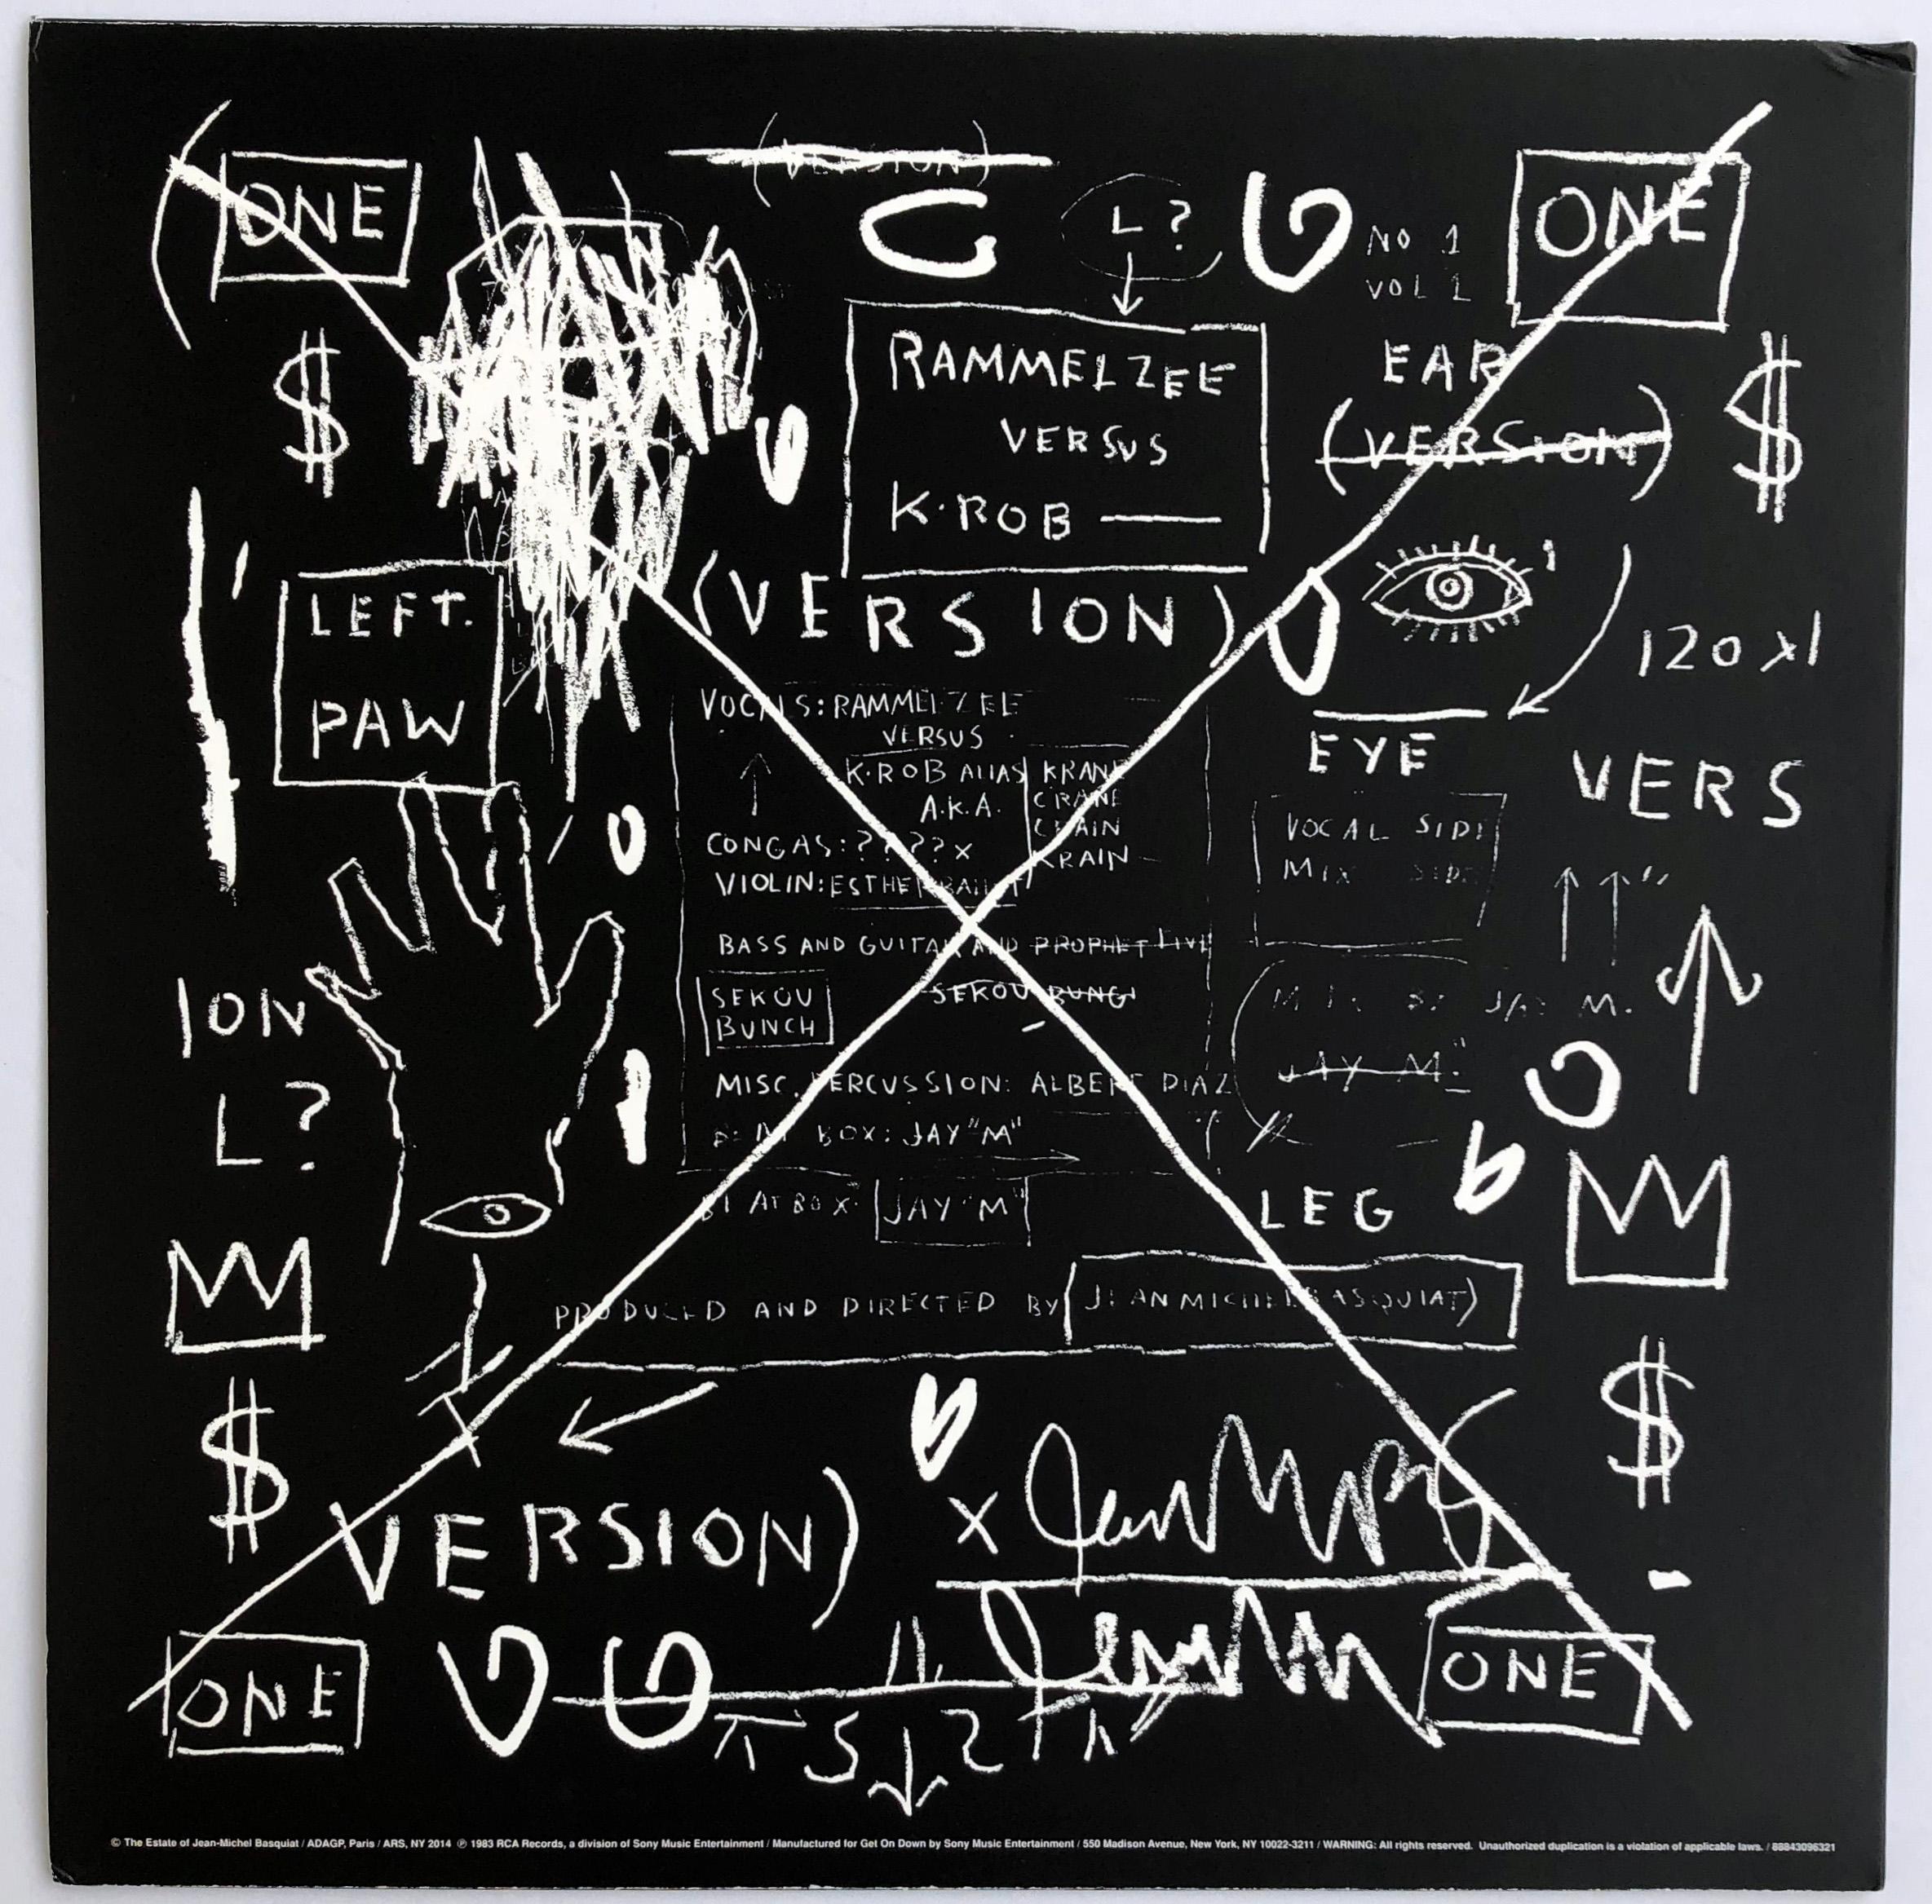 (VERSION)
ONE
L?
NO 1
VOL 1
ONE
$
RAMMELZEE
VERSUS
K·ROB
EAR
(VERSION)
$
LEFT.
PAW
(VERSION)
120 X1
VOCALS: RAMMELZEE
VERSUS
K·ROB ALIAS
A.K.A.
KRANE
CRANE
CHAIN
KRAIN
EYE
VERS
CONGAS: ???? X
VIOLIN: ESTHER
VOCAL SIDE
MIX SIDE
BASS AND GUITAR AND PROPHET LIVE
SEKOU
BUNCH
SEKOU BUNG
JAY M.
JAY M.
ION
L?
MISC. PERCUSSION: ALBERT DIAZ
BOX: JAY "M"
BEATBOX: JAY "M"
LEG
PRODUCED AND DIRECTED BY JEAN MICHEL BASQUIAT)
$
$
VERSION)
X
ONE
ONE
© The Estate of Jean-Michel Basquiat / ADAGP, Paris / ARS, NY 2014 ℗ 1983 RCA Records, a division of Sony Music Entertainment / Manufactured for Get On Down by Sony Music Entertainment / 550 Madison Avenue, New York, NY 10022-3211 / WARNING: All rights reserved. Unauthorized duplication is a violation of applicable laws. / 88843096321